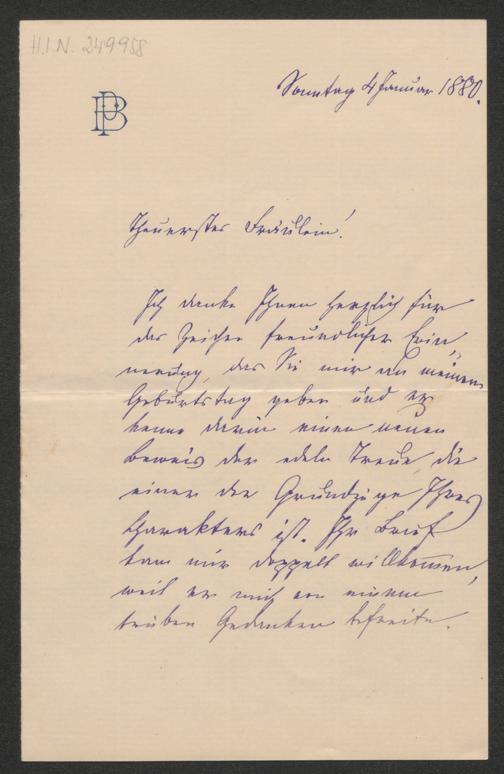 H.I.N. 249958
PB
Sonntag 4 Januar 1880.
Theuerstes Fräulein!
Ich danke Ihnen herzlich für
das Zeichen freundlicher Erin
nerung, das Sie mir an meinem
Geburtstag geben und er
kenne darin einen neuen
Beweis der edeln Treue, die
einer der Grundzüge Ihres
Charakters ist. Ihr Brief
kam mir doppelt willkommen,
weil er mich von einem
trüben Gedanken befreite.